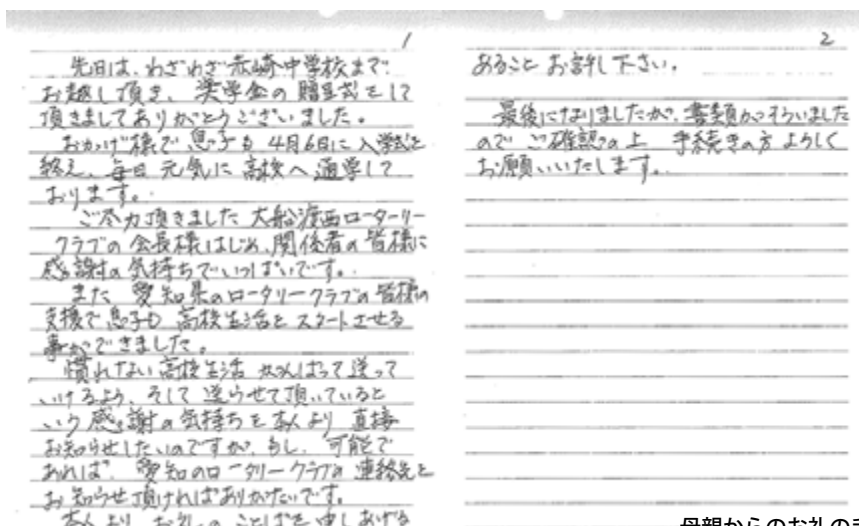 1
先日は、わざわざ赤崎中学校まで
お越し頂き、奨学金の贈呈式をして
頂きましてありがとうございました。
おかげ様で息子も4月6日に入学式を
終え、毎日元気に高校へ通学して
おります。
ご尽力頂きました大船渡西ロータリー
クラブの会長様はじめ、関係者の皆様に
感謝の気持ちでいっぱいです。
また 愛知県のロータリークラブの皆様の
支援で息子も 高校生活をスタートさせる
事ができました。
慣れない高校生活 がんばって送って
いけるよう、そして送らせて頂いていると
いう感謝の気持ちを本人より 直接
お知らせしたいのですが、もし、可能で
あれば、愛知のロータリークラブの連絡先を
お知らせ頂ければありがたいです。
本人より お礼の ことばを申しあげる
2
あること お許し下さい。
最後になりましたが、書類がそろいました
ので ご確認の上 手続きの方 よろしく
お願いいたします。
母親からのお礼の